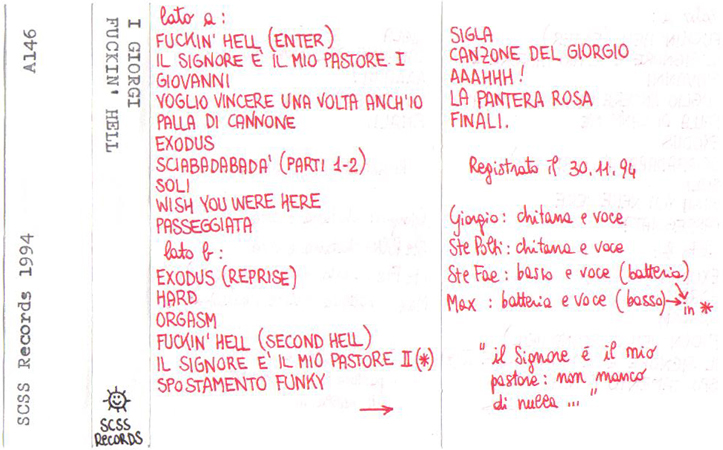 A146
SCSS Records 1994
I GIORGI
FUCKIN' HELL
SCSS
RECORDS
lato a:
FUCKIN' HELL (ENTER)
IL SIGNORE E' IL MIO PASTORE I
GIOVANNI
VOGLIO VINCERE UNA VOLTA ANCH'IO
PALLA DI CANNONE
EXODUS
SCIABADABADA' (PARTI 1-2)
SOLI
WISH YOU WERE HERE
PASSEGGIATA
lato b:
EXODUS (REPRISE)
HARD
ORGASM
FUCKIN' HELL (SECOND HELL)
IL SIGNORE E' IL MIO PASTORE II (*)
SPOSTAMENTO FUNKY
→
SIGLA
CANZONE DEL GIORGIO
AAAHHH!
LA PANTERA ROSA
FINALI.
Registrato il 30.11.94
Giorgio: chitarra e voce
Ste Polti: chitarra e voce
Ste Fae: basso e voce (batteria)
Max : batteria e voce (basso) → in *
"il Signore è il mio
pastore: non manco
di nulla ..."